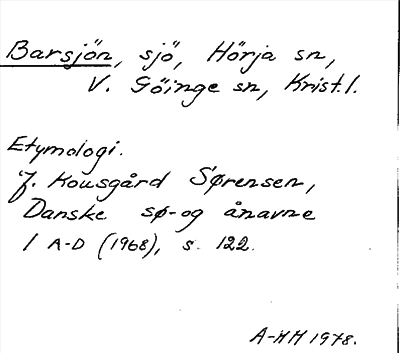 Barsjön, sjö, Hörja sn,
V. Göinge sn, Krist.l.
Etymologi.
J. Kousgård Sørensen,
Danske sø- og ånavne
1 A-D (1968), s. 122.
A-HH 1978.